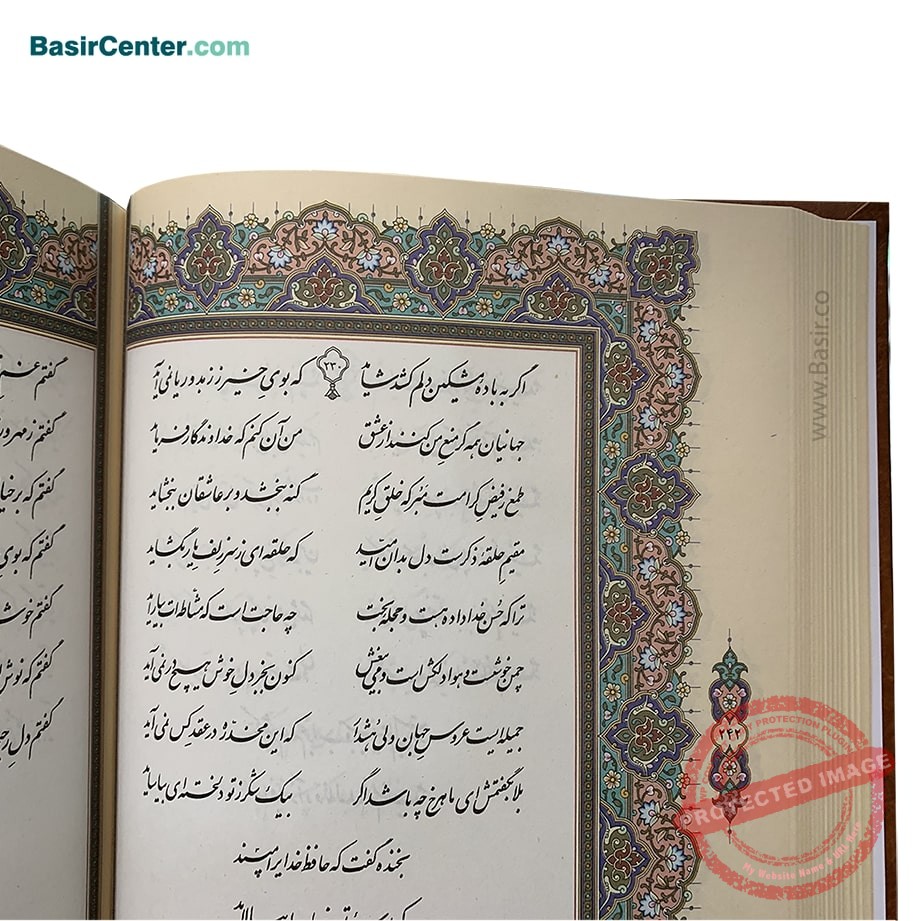 BasirCenter.com
اگر به باده مشکین دلم کشد شاید ۲۳ که بوی خیر ز زهد و ریا نمی آید
جهانیان همه گر منع من کنند از عشق من آن کنم که خداوندگار فرماید
طمع ز فیض کرامت مبر که خلق کریم گنه ببخشد و بر عاشقان ببخشاید
مقیم حلقه ذکرست دل بدان امید که حلقه ای ز سر زلف یار بگشاید
ترا که حسن خداداده هست و حجله بخت چه حاجت است که مشاطه ات بیاراید
چمن خوشست و هوا دلکش است و می بیغش کنون بجز دل خوش هیچ در نمی آید
جمیله ایست عروس جهان ولی هشدار که این مخدره در عقد کس نمی آید
بلابه گفتمش ای ماهرخ چه باشد اگر بیک شکر ز تو دلخسته ای بیاساید
بخنده گفت که حافظ خدایرا مپسند
گفتم
گفتم ز مهر
گفتم که بر
گفتم که بوی
گفتم خوش
گفتم که نوش
گفتم دل
www.Basir.co
۲۴۲
PROTECTED IMAGE
My Website Name & URL Help